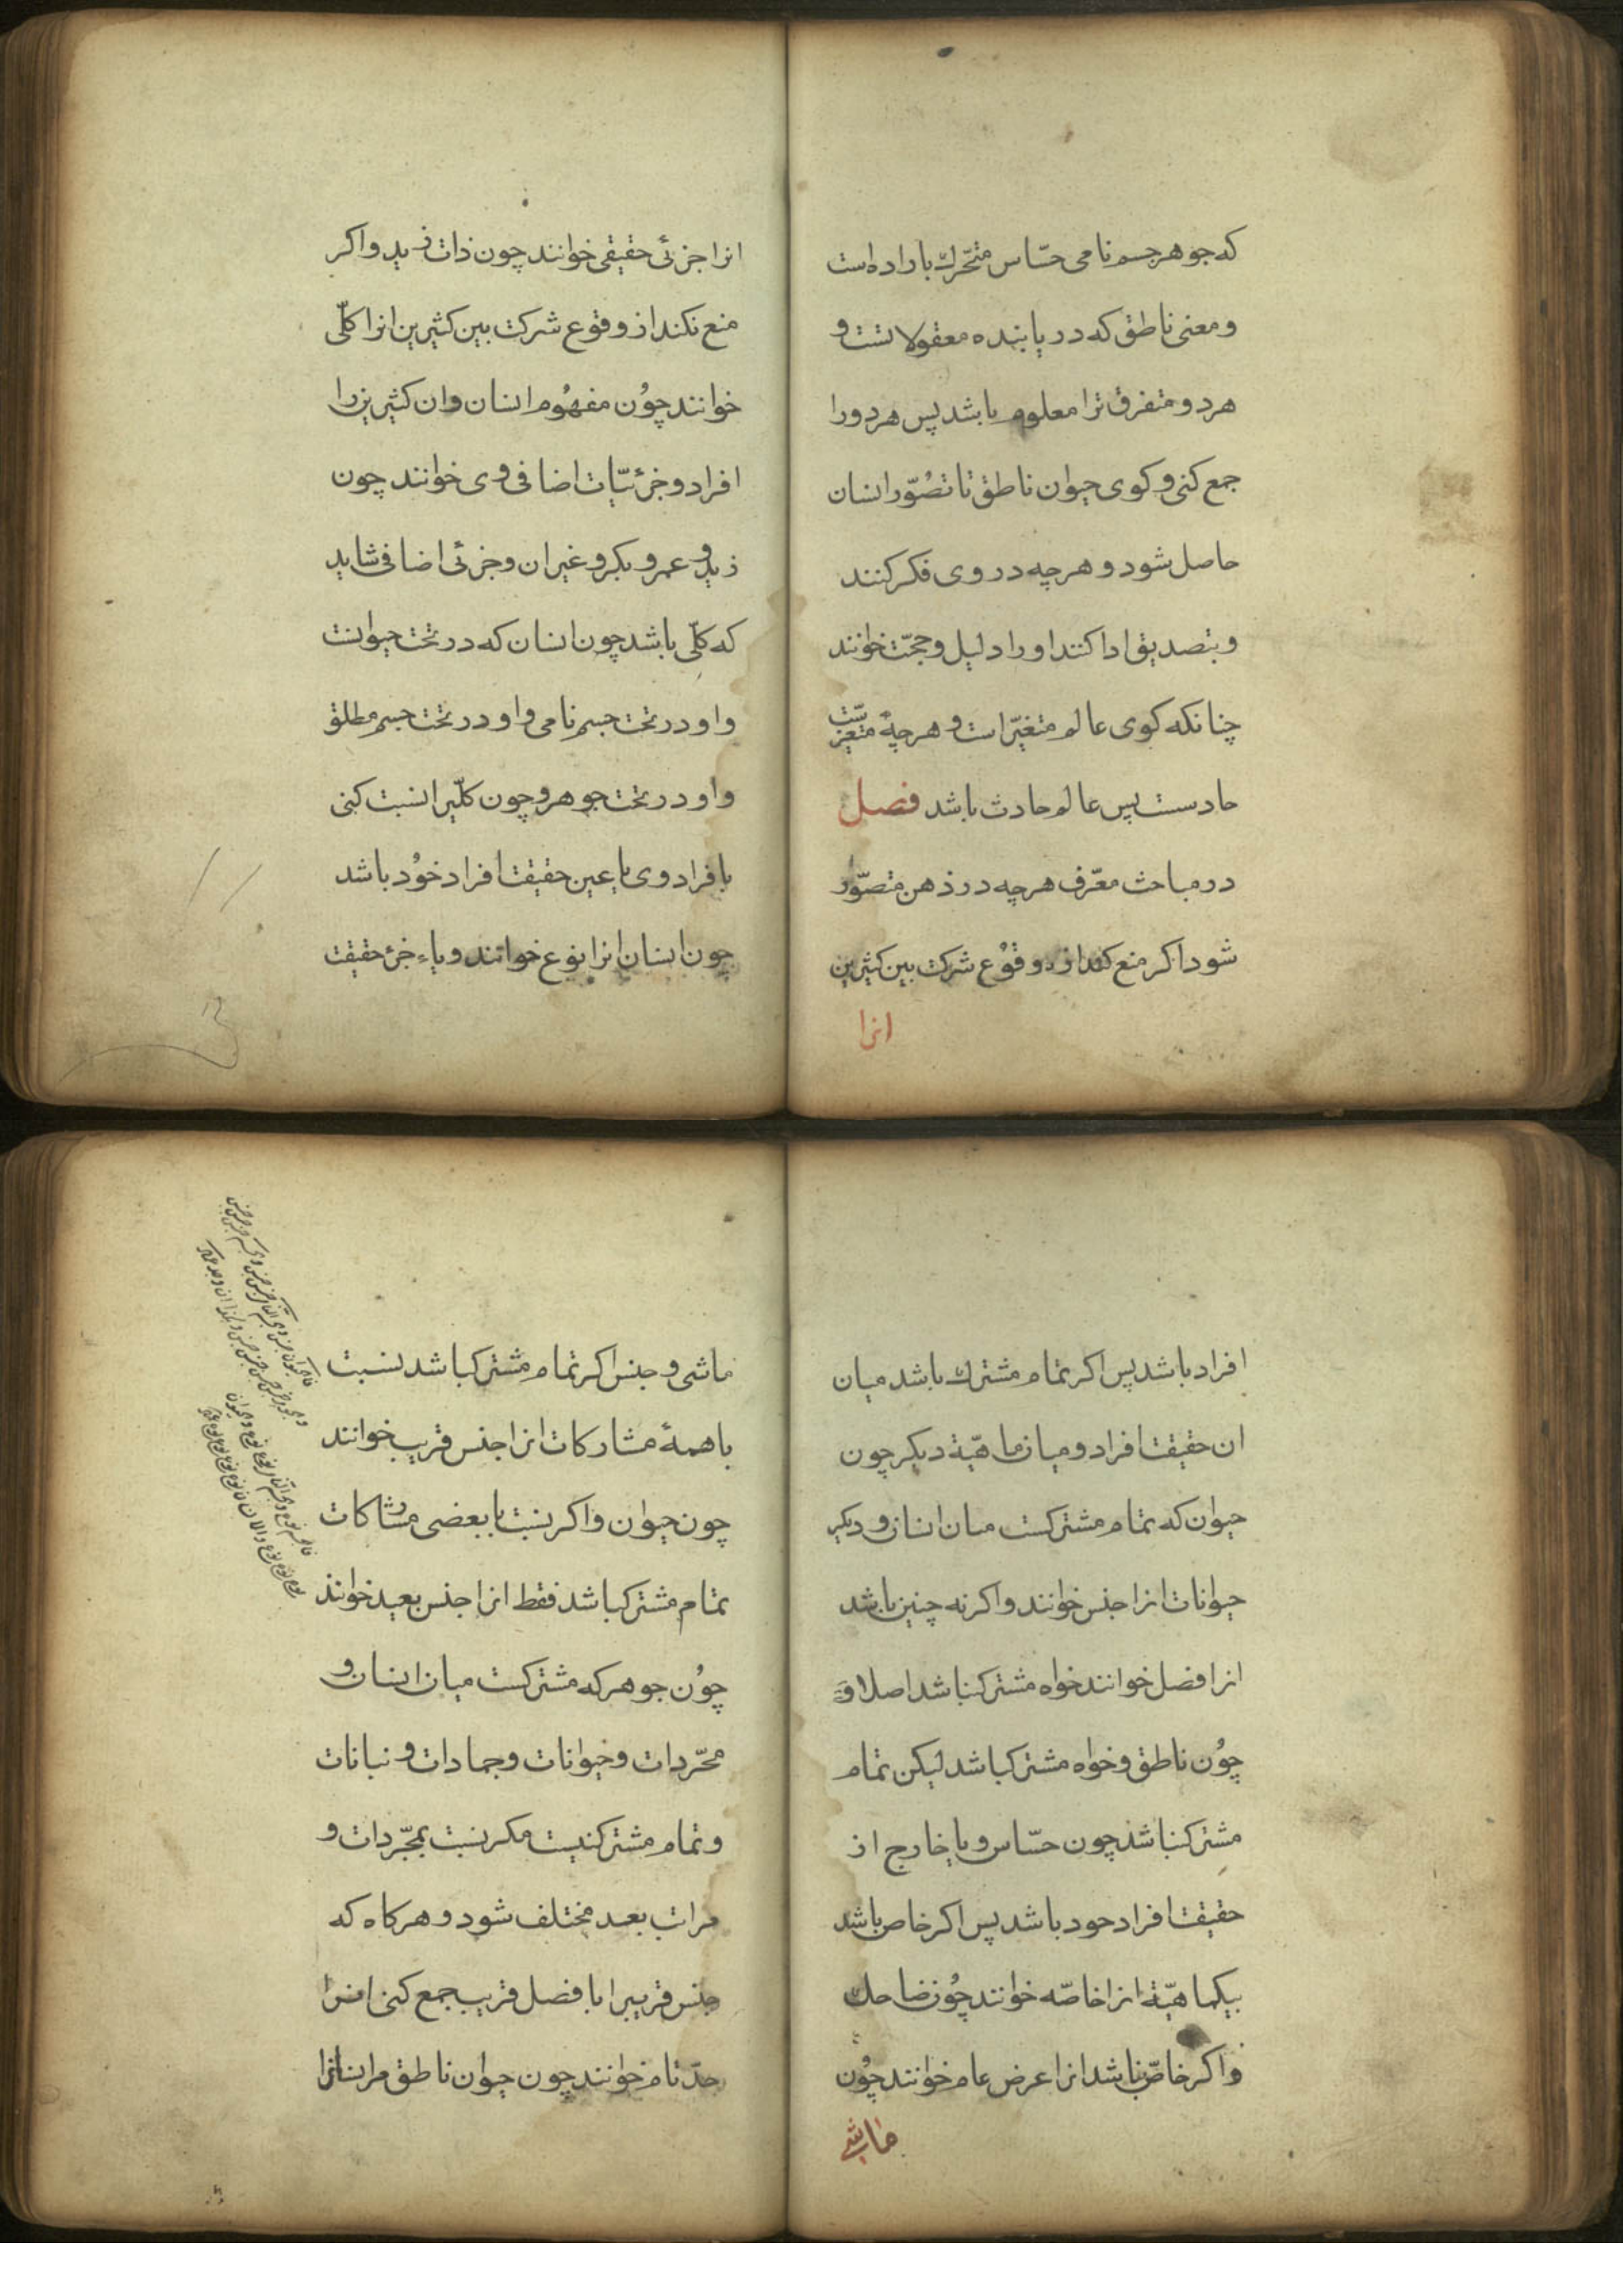 که جوهر جسم نامی حسّاس متحّرک باراده است
و معنی ناطق که دریابنده معقولاتست و
هر دو متفرق ترا معلوم باشد پس هر دو را
جمع کنی و کوی حیوان ناطق تا تصُوّر انسان
حاصل شود و هرچه در وی فکر کنند
و بتصدیق ادا کنند او را دلیل و حجّت خوانند
چنانکه کوی عالم متغیّر است و هرچه متغیّرست
حادست پس عالم حادث باشد فصل
در مباحث معّرف هرچه در ذهن متصّور
شود اکر منع کند از وقوُع شرکت بین کثیرین
انرا
انرا جزئی حقیقی خوانند چون ذات زید و اکر
منع نکند از وقوع شرکت بین کثیرین انرا کلّی
خوانند چوُن مفهوُم انسان و ان کثیرین را
افراد و جزئیّات اضافی وی خوانند چون
زید و عمرو و بکر و غیر ان و جزئی اضافی شاید
که کلّی باشد چون انسان که در تحت حیوانست
و او در تحت جسم نامی و او در تحت جسم مطلق
و او در تحت جوهر و چون کلّیرا نسبت کنی
بافراد وی یا عین حقیقت افراد خوُد باشد
چون انسان انرا نوع خوانند و یا جزء حقیقت
افراد باشد پس اکر تمام مشترک باشد میان
ان حقیقت افراد و میان ماهیّة دیکر چون
حیوان که تمام مشترکست میان انسان و دیکر
حیوانات انرا جنس خوانند و اکر نه چنین باشد
انرا فصل خوانند خواه مشترک نباشد اصلا
چوُن ناطق و خواه مشترک باشد لیکن تمام
مشترک نباشد چون حسّاس و یا خارج از
حقیقت افراد خود باشد پس اکر خاص باشد
بیکماهیّة انرا خاصّه خوانند چوُن ضاحک
و اکر خاصّ نباشد انرا عرض عام خوانند چوُن
ماشی
ماشی و جنس اکر تمام مشترک باشد نسبت
با همهٔ مشارکات انرا جنس قریب خوانند
چون حیوان و اکر نسبت با بعضی مشارکات
تمام مشترک باشد فقط انرا جنس بعید خوانند
چوُن جوهر که مشترکست میان انسان و
مجّردات و حیوانات و جمادات و نباتات
و تمام مشترک نیست مکر نسبت بمجّردات و
مراتب بعد مختلف شود و هرکاه که
جنس قریبرا با فصل قریب جمع کنی انرا
حدّ تام خوانند چون حیوان ناطق مر انسانرا